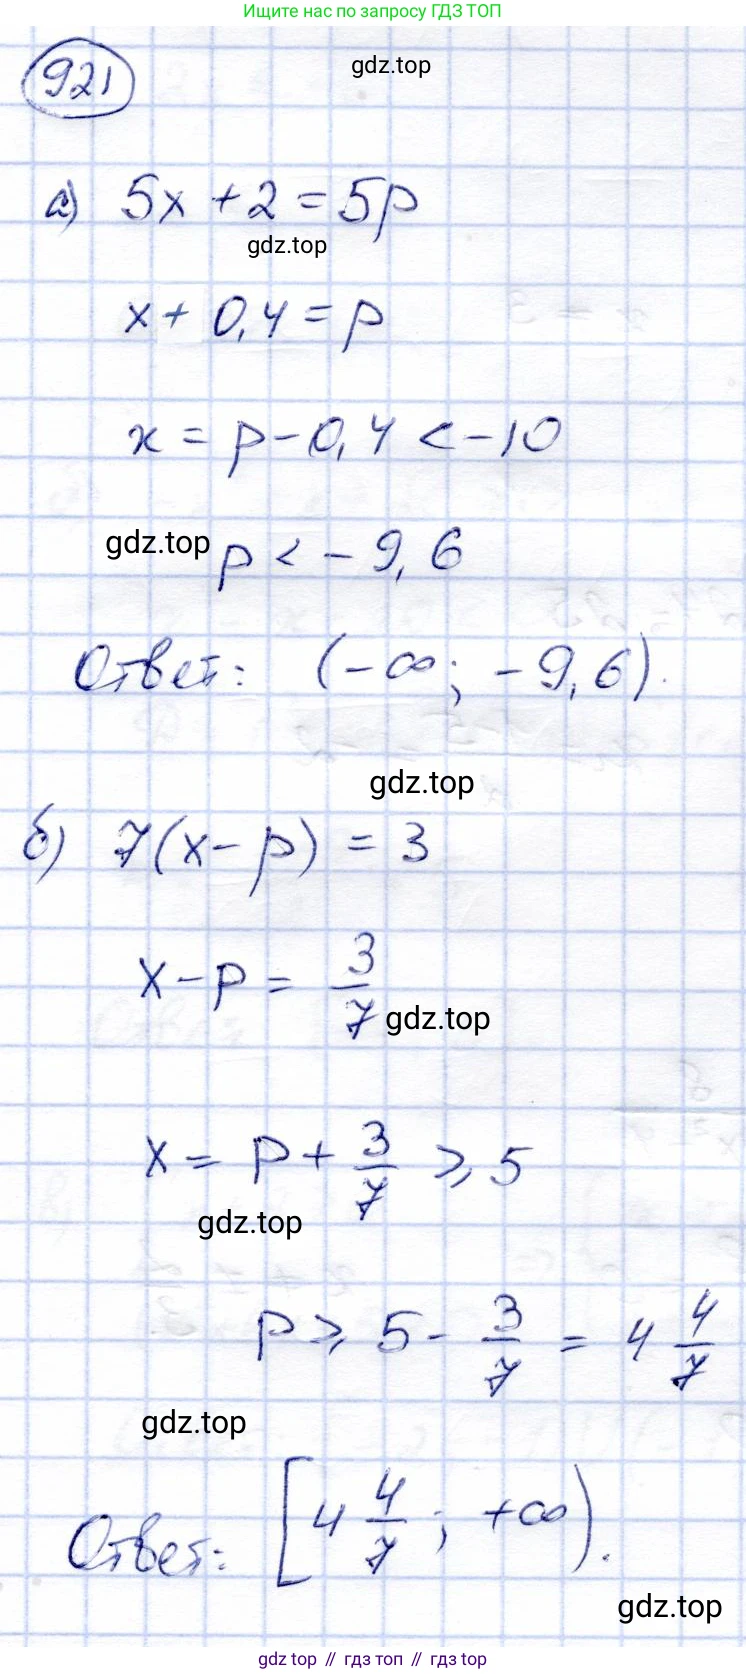 Ищите нас по запросу ГДЗ ТОП
921
gdz.top
а) 5x + 2 = 5p
gdz.top
x + 0,4 = p
x = p - 0,4 < -10
gdz.top
p < -9,6
Ответ: (-∞; -9,6).
gdz.top
б) 7(x - p) = 3
x - p = 3/7
gdz.top
x = p + 3/7 ⩾ 5
gdz.top
p ⩾ 5 - 3/7 = 4 4/7
gdz.top
Ответ: [4 4/7; +∞).
gdz.top
gdz.top // гдз топ // гдз.top